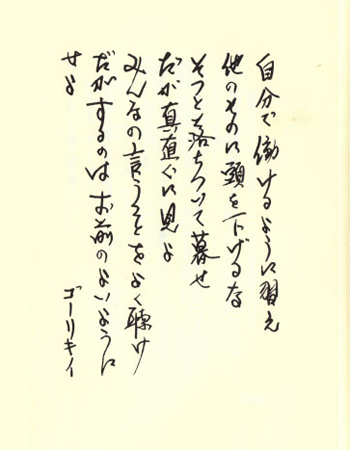 自分で働けるように習え
他のものに頭を下げるな
そっと落ちついて暮せ
だが真直ぐに見よ
みんなの言うことをよく聴け
だがするのはお前のよいように
せよ
ゴーリキイ